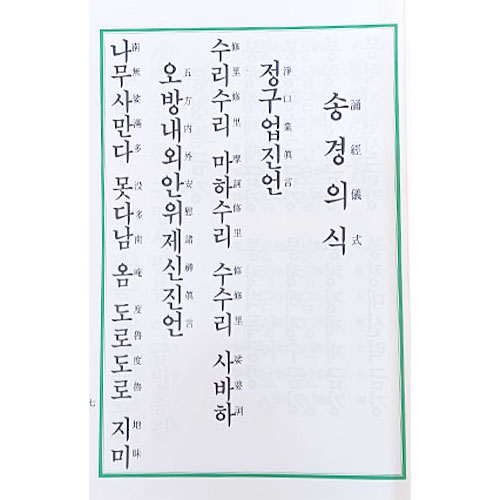 송경의식
誦經儀式
정구업진언
淨口業眞言
수리수리 마하수리 수수리 사바하
修里修里 摩訶修里 修修里 娑婆訶
오방내외안위제신진언
五方內外安慰諸神眞言
나무사만다 못다남 옴 도로도로 지미
南無娑滿多 没多南 唵 度魯度魯 地味
七